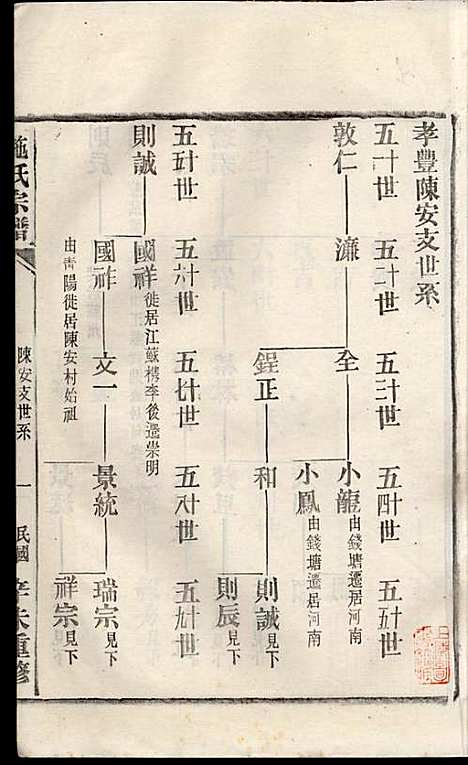 孝豐陳安支世系
五十一世 五十二世 五十三世 五十四世 五十五世
敦仁 濂 全 小龍 由錢塘遷居河南
小鳳 由錢塘遷居河南
鋥正 和 則誠 見下
則辰 見下
五十五世 五十六世 五十七世 五十八世 五十九世
則誠 國祥 徙居江蘇檇李後遷崇明
國祚 文一 景統 瑞宗 見下
祥宗 見下
由青陽徙居陳安村始祖
施氏宗譜
陳安支世系
一
民國辛未重修